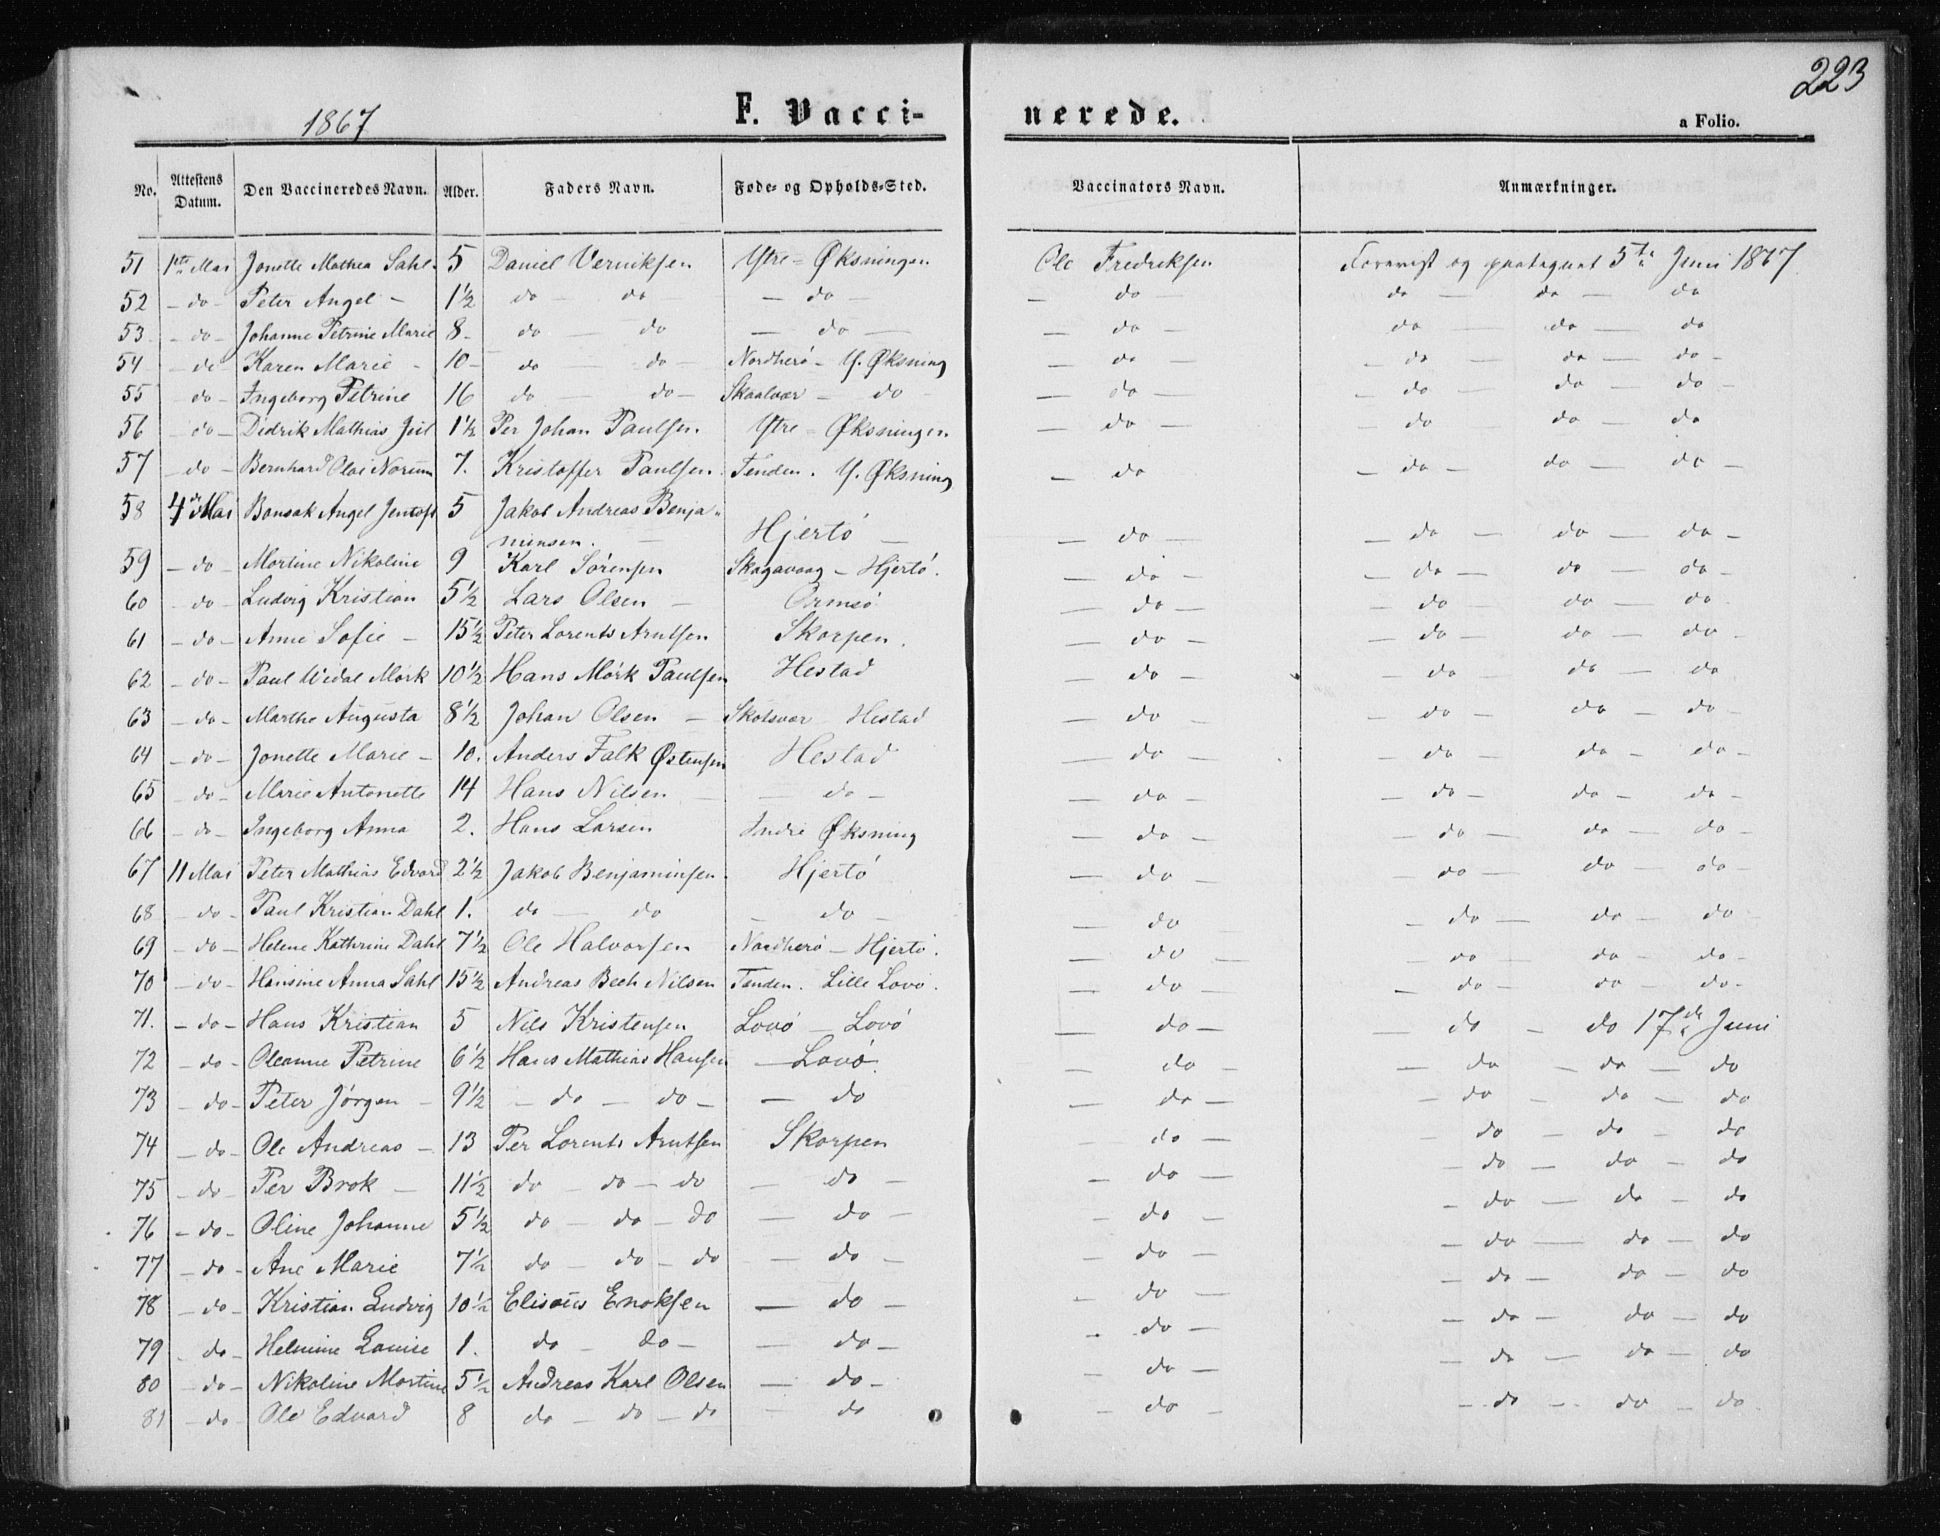 223
1867
F. Vacci-
nerede.
a Folio.
No. Attestens Datum. Den Vaccineredes Navn. Alder. Faders Navn. Føde- og Opholds-Sted. Vaccinators Navn. Anmærkninger.
51 1ste Mai Jonette Mathea Sahl. 5 Daniel Verniksen Ytre = Øksningen Ole Fredriksen Forevist og paategnet 5te Juni 1867
52 - do - Peter Angel - 1½ do - do - - do - do - do - do - do
53 - do - Johanne Petrine Marie 8 - do - do - do - - do - do - do - do
54 - do Karen Marie - 10 - do - do - Nordherö - Y. Øksning - do - do - do - do -
55 do - Ingeborg Petrine 16 do - do - Skaalvær - do - do - - do - do - do -
56 - do - Didrik Mathias Jul 1½ Per Johan Paulsen Ytre = Øksningen - do - do do - do
57 - do - Bernhard Olai Norum 7. Kristoffer Paulsen Tenden. Y. Øksning - do - do - do - do -
58 4de Mai Bonsak Angel Jentoft 5 Jakob Andreas Benja-
minsen. - Hjertö - - do - - do - do - do -
59 - do - Mortine Nikoline 9 Karl Sörensen Skagavaag - Hjertö. - do - - do - do - do -
60 - do - Ludvig Kristian 5½ Lars Olsen - Ormsö - do - - do - do - do
61 - do - Anne Sofie - 15½ Peter Lorents Arntsen Skorpen. - do - - do - do - do -
62 - do - Paul Widal Mörk 10½ Hans Mörk Paulsen Hestad - do - - do - do - do
63 - do - Marthe Augusta 8½ Johan Olsen - Skotsvær - Hestad - do - - do - do - do -
64 - do - Jonette Marie - 10. Anders Falk Østensen Hestad - do - do - do - do -
65 - do - Marie Antonette 14 Hans Nilsen - - do - - do - - do - do - do -
66 - do - Ingeborg Anna 2. Hans Larsen Indre Øksning - do - - do - do - do -
67 11 Mai Peter Mathias Edvard 2½ Jakob Benjaminsen Hjertö - do - - do - do - do -
68 - do - Paul Kristian Dahl 1. do - do - do - - do - do - do - do
69 - do - Helene Kathrine Dahl 7½ Ole Halvorsen Nordherö - Hjertö. - do - - do - do - do -
70 - do - Hansine Anna Sahl 15½ Andreas Bech Nilsen Tenden. Lille Lovö. - do - - do - do - do -
71. - do - Hans Kristian 5 Nils Kristensen Lovö - Lovö - do - - do - do 17de Juni
72 - do - Oleanne Petrine 6½ Hans Mathias Hansen - Lovö. - do - - do - do - do
73 - do - Peter Jörgen - 9½ - do - do - - do - do - - do - do - do
74 - do - Ole Andreas - 13 Per Lorents Arntsen Skorpen - do - - do - do - do
75 - do - Per Brok - 11½ do - do - do - do - - do - - do - do - do
76 - do - Oline Johanne 5½ do - do - do - do - - do - - do - do - do
77 - do - Ane Marie 7½ do - do - do - do - - do - - do - do - do
78 - do - Kristian Ludvig 10½ Elisæus Enoksen - do - - do - - do - do - do
79 - do - Helmine Louise 1. do - do - - do - - do - - do - do - do
80 - do - Nikoline Mortine 5½ Andreas Karl Olsen - do - - do - - do - do - do
81 - do - Ole Edvard 8 do - do - do - do - do - - do - do - do